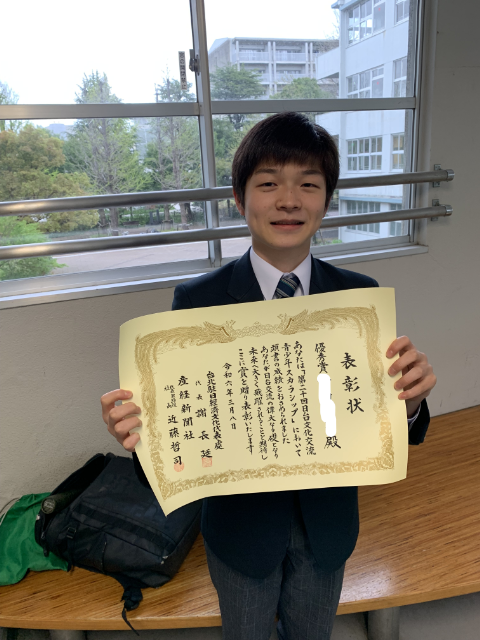 表彰状
優秀賞
殿
あなたは「第二十四回日台文化交流
青少年スカラシップ」において
頭書の成績をおさめられました
あなたが日台交流の偉大なる礎となり
未来へ大きく飛躍されんことを期待し
ここに賞を贈り表彰いたします
令和六年三月八日
台北駐日経済文化代表処
代表 謝長廷
産経新聞社
近藤哲司